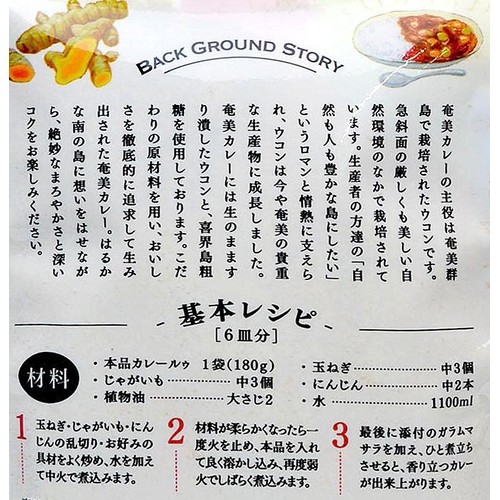 BACK GROUND STORY
奄美カレーの主役は奄美群
島で栽培されたウコンです。
急斜面の厳しくも美しい自
然環境のなかで栽培されて
います。生産者の方達の「自
然も人も豊かな島にしたい」
というロマンと情熱に支えら
れ、ウコンは今や奄美の貴重
な生産物に成長しました。
奄美カレーには生のまます
り潰したウコンと、喜界島粗
糖を使用しております。こだ
わりの原材料を用い、おいし
さを徹底的に追求して生み
出された奄美カレー。はるか
な南の島に想いをはせなが
ら、絶妙なまろやかさと深い
コクをお楽しみください。
基本レシピ
[6皿分]
材料
・本品カレールゥ 1袋(180g)
・じゃがいも………………中3個
・植物油……………大さじ2
・玉ねぎ………………中3個
・にんじん……………中2本
・水……………1100ml
1 玉ねぎ・じゃがいも・にん
じんの乱切り・お好みの
具材をよく炒め、水を加え
て中火で煮込みます。
2 材料が柔らかくなったら一
度火を止め、本品を入れ
て良く溶かし込み、再度弱
火でしばらく煮込みます。
3 最後に添付のガラムマ
サラを加え、ひと煮立ち
させると、香り立つカレー
が出来上がります。